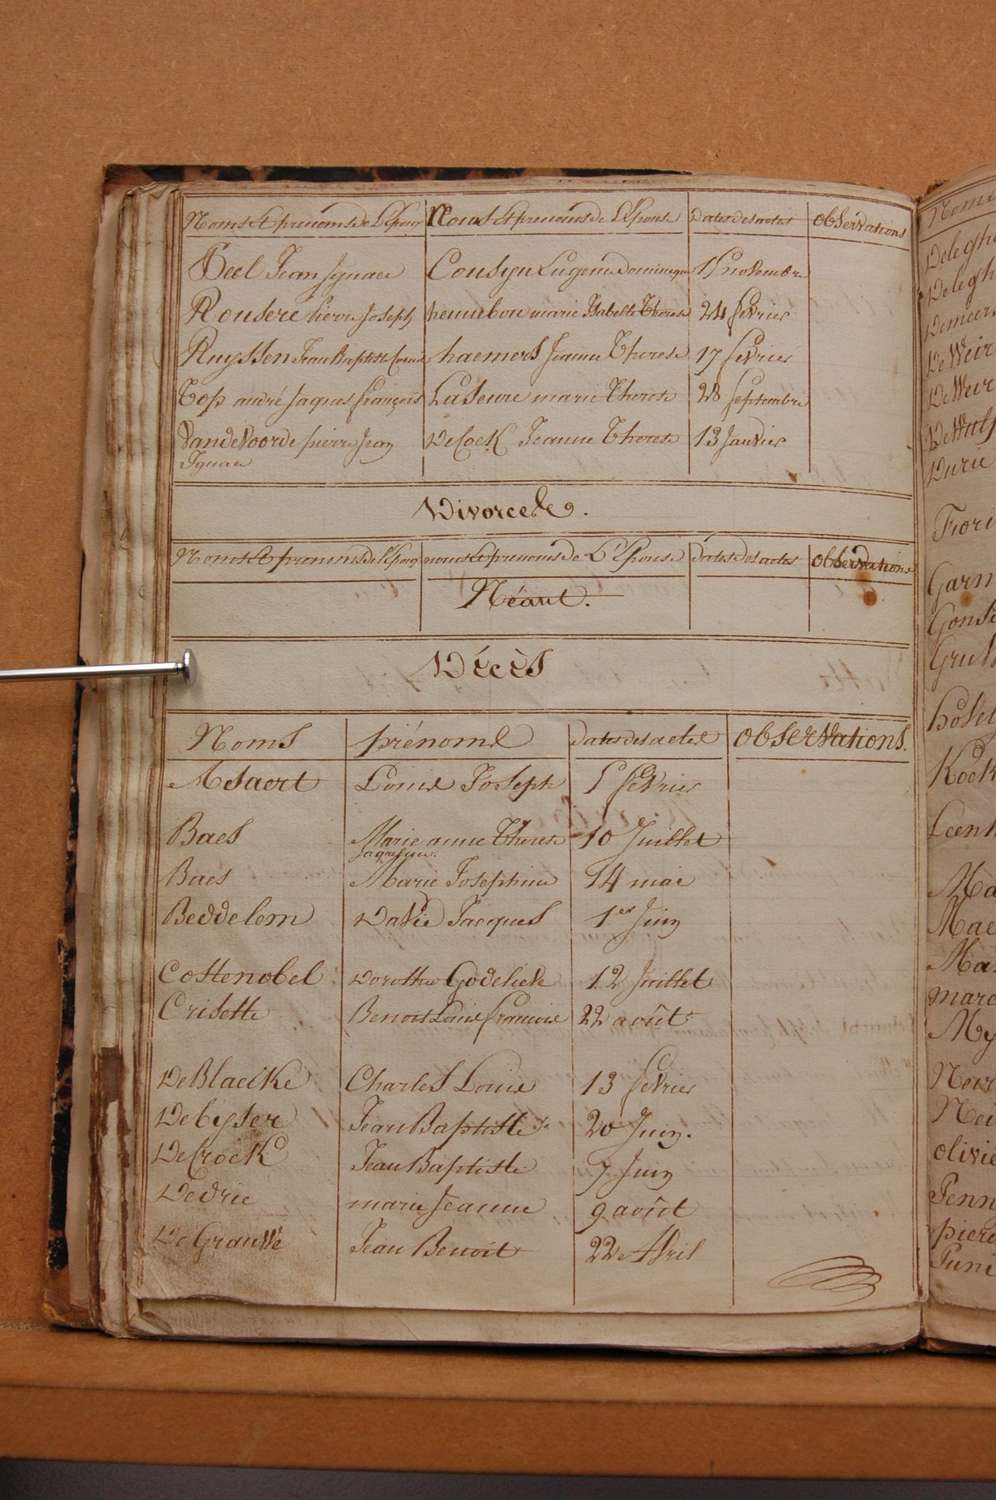 Noms et prénoms de L'Epoux Noms et prenoms de L'Epouse Dates des actes Observations
Beel Jean Ignace Cousyn Eugenie Dominique 15 novembre
Rousere pierre Joseph hennebon marie Isabelle Therese 24 fevrier
Ruyssen Jean Baptiste haemers Jeanne Therese 17 fevrier
Top andré Jaques françois Laseure marie Therese 28 septembre
Vandevoorde pierre Jean DeCock Jeanne Therese 13 Janvier
Ignace
Divorce
Noms et prenoms de l'Epoux noms et prenoms de L'Epouse dates des actes Observations
Néant.
Décès
Noms prénoms Dates des actes Observations.
Louis Joseph 5 fevrier
Baes Marie anne Therese 10 Juillet
Baes Marie Josephine 14 mai
Beddelem David Jacques 1er Juin
Costenobel Dorothe Godelieve 12 Juillet
Crisette Benoit Louis francois 22 août
DeBlaeike Charles Louis 13 fevrier
Debyser Jean Baptiste 20 Juin.
DeCrock Jean Baptiste 7 Juin
Dedrie marie Jeanne 9 août
DeGrauwe Jean Benoit 22 Avril
Noms
Delegh
Delegh
Demeers
DeWeir
DeWeer
DeWulf
Durie
Flori
Garm
Gonse
Gruw
hoste
Koek
Leenk
Ma
Mae
Ma
marc
My
New
Nei
olivie
Penn
piere